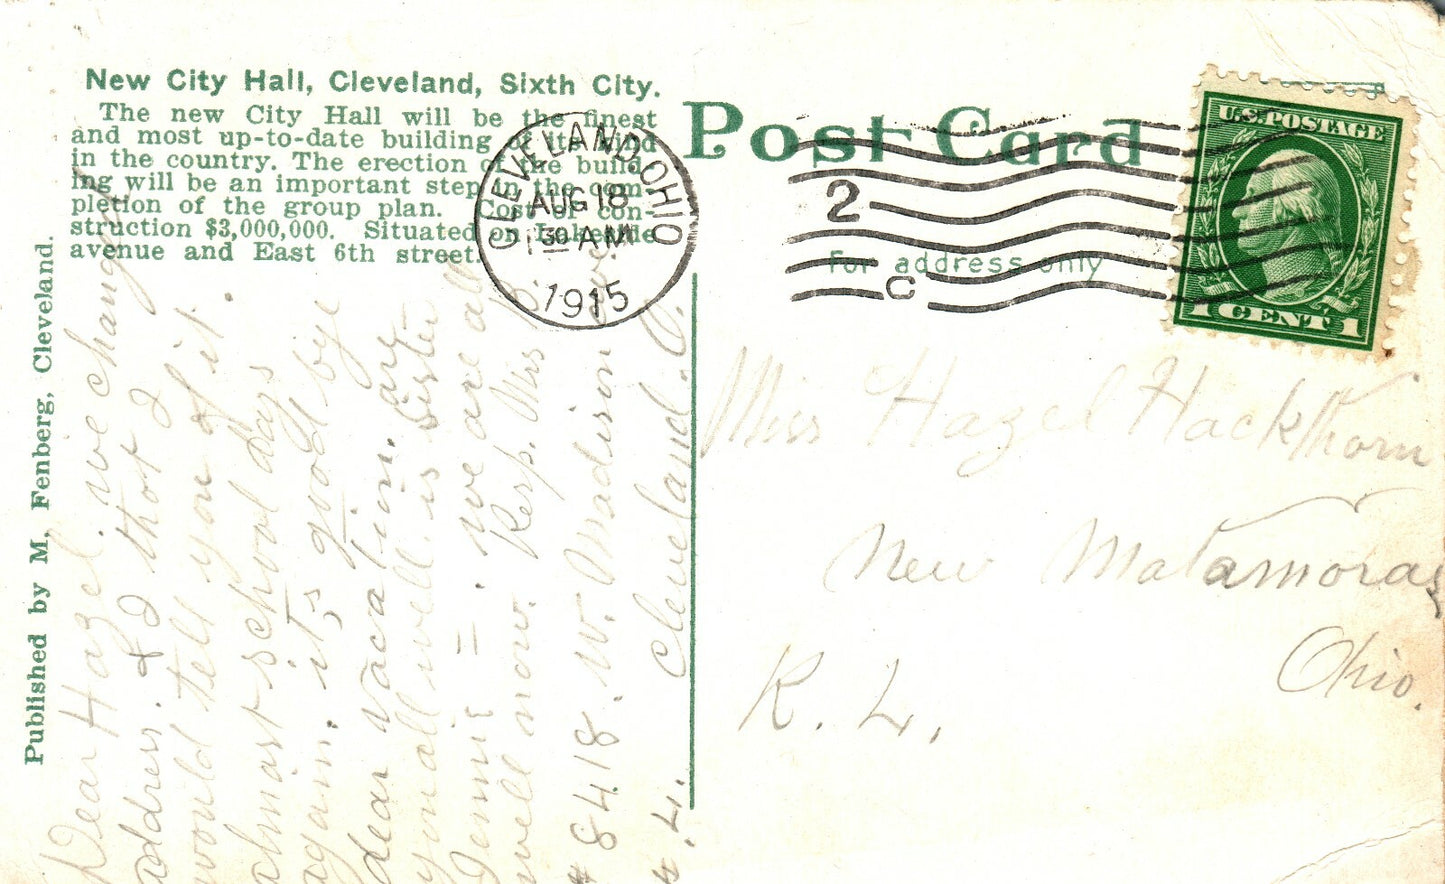 New City Hall, Cleveland, Sixth City.
The new City Hall will be the finest
and most up-to-date building of its kind
in the country. The erection of the build-
ing will be an important step in the com-
pletion of the group plan. Cost of con-
struction $3,000,000. Situated on Lakeside
avenue and East 6th street.
Published by M. Fenberg, Cleveland.
Post Card
For address only
CLEVELAND, OHIO
AUG 18
1 30 AM
1915
2
C
U.S. POSTAGE
1 CENT 1
Dear Hazel. we changed
address. & I thot I
would tell you of it.
almost school days
again. its good bye
dear vacation. are
you all well. is sister
Jennie = . we are all
well now. Resp. Miss
8418. W. Madison Ave.
Cleveland. O.
Miss Hazel Hackthorn
New Matamoras
Ohio.
R. 2.